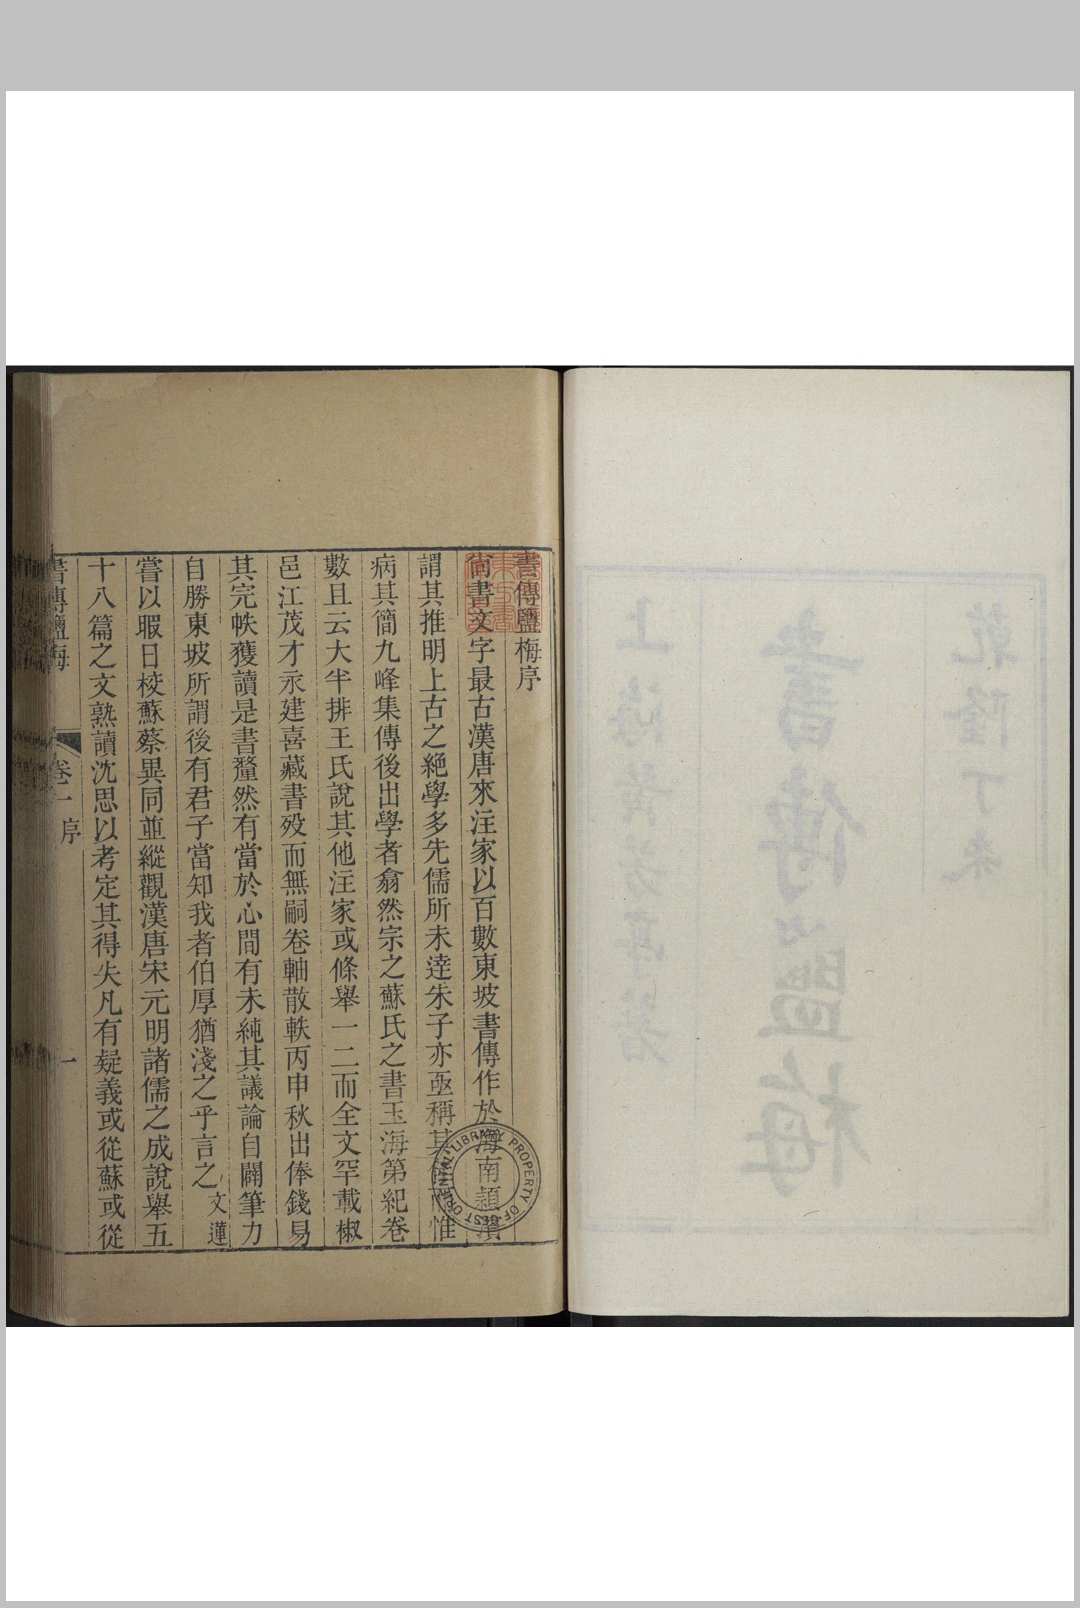 書傳鹽梅序
尚書文字最古漢唐來注家以百數東坡書傳作於海南潁濱
謂其推明上古之絶學多先儒所未達朱子亦亟稱其 惟
病其簡九峰集傳後出學者翕然宗之蘇氏之書玉海第紀卷
數且云大半排王氏說其他注家或條舉一二而全文罕載椒
邑江茂才永建喜藏書歿而無嗣卷軸散軼丙申秋出俸錢易
其完帙獲讀是書釐然有當於心間有未純其議論自闢筆力
自勝東坡所謂後有君子當知我者伯厚猶淺之乎言之文蓮
嘗以暇日校蘇蔡異同並縱觀漢唐宋元明諸儒之成說舉五
十八篇之文熟讀沈思以考定其得失凡有疑義或從蘇或從
書傳鹽梅 卷一 序 一
乾隆丁未
書傳鹽梅
上海黃
ORIENTAL LIBRARY PROPERTY OF